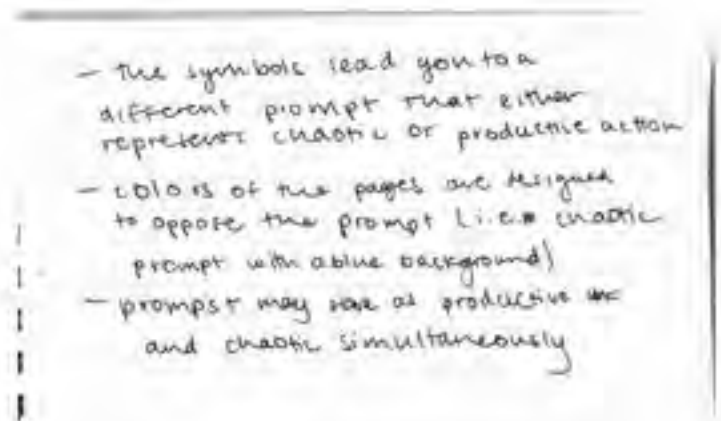 - the symbols lead you to a
different prompt that either
represents chaotic or productive action
- colors of the pages are designed
to oppose the prompt (i.e. chaotic
prompt with a blue background)
- prompst may as productive
and chaotic simultaneously